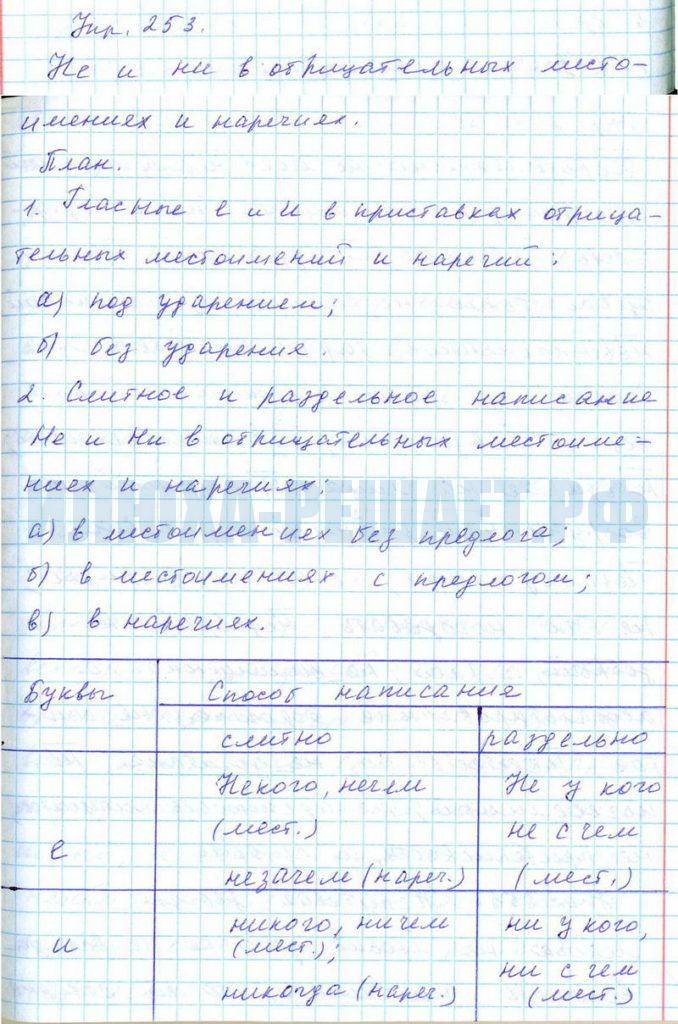 Упр. 253.
Не и ни в отрицательных место-
имениях и наречиях.
План.
1. Гласные е и и в приставках отрица-
тельных местоимений и наречий:
а) под ударением;
б) без ударения.
2. Слитное и раздельное написание
Не и Ни в отрицательных местоиме-
ниях и наречиях:
ПЛОХА-РЕШАЕТ.РФ
а) в местоимениях без предлога;
б) в местоимениях с предлогом;
в) в наречиях.
Буквы Способ написания
слитно раздельно
Некого, нечем Не у кого
(мест.) не с чем
е незачем (нареч.) (мест.)
никого, ничем ни у кого,
и (мест.); ни с чем
никогда (нареч.) (мест.)